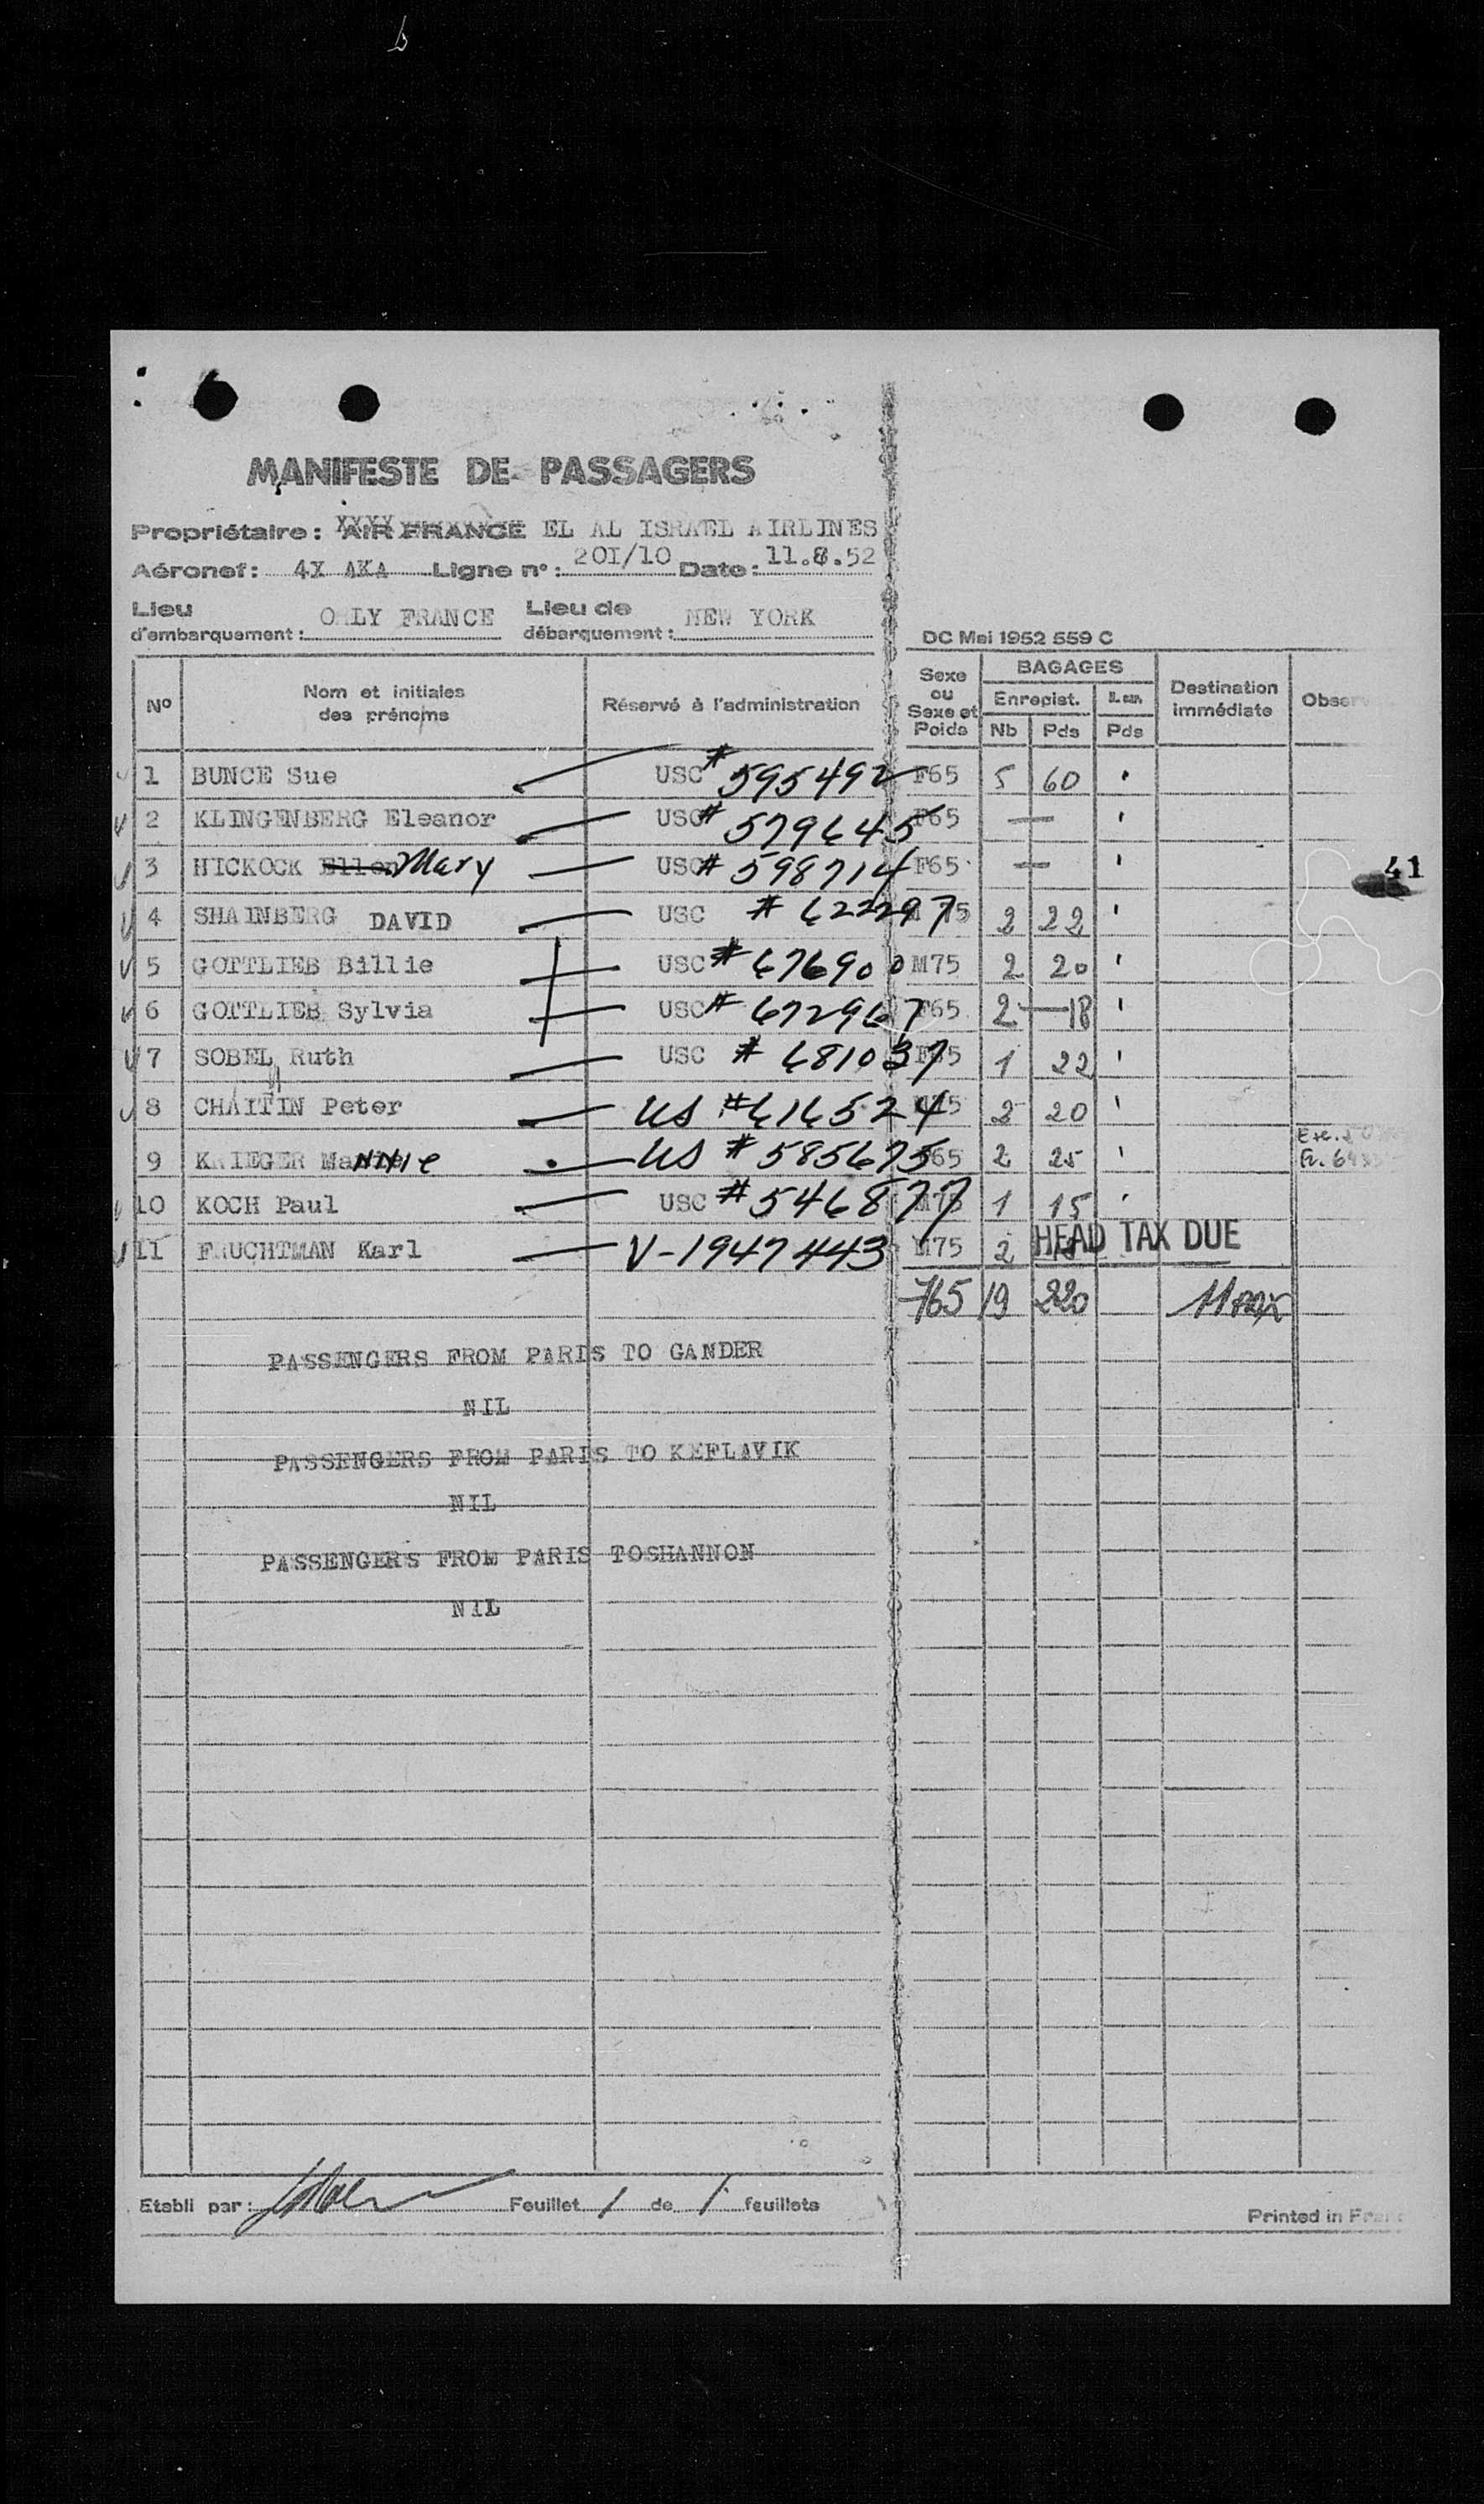 MANIFESTE DE PASSAGERS
Propriétaire : XXXX AIR FRANCE EL AL ISRAEL AIRLINES
Aéronef : 4X AKA Ligne n° : 20I/10 Date : 11.8.52
Lieu d'embarquement : O LY FRANCE Lieu de débarquement : NEW YORK
DC Mai 1952 559 C
N° Nom et initiales des prénoms Réservé à l'administration Sexe ou Sexe et Poids BAGAGES Enregist. Nb Pds Pds Destination immédiate
1 BUNCE Sue USC # 595492 F65 5 60 '
2 KLINGENBERG Eleanor USC # 579645 F65 — '
3 HICKOCK Ellen Mary USC # 598714 F65 — '
41
4 SHAINBERG DAVID USC # 622297 M 75 2 22 '
5 GOTTLIEB Billie USC # 676900 M75 2 20 '
6 GOTTLIEB Sylvia USC # 672967 F65 2 — 18 '
7 SOBEL Ruth USC # 681037 F65 1 22 '
8 CHAITIN Peter US # 616524 M75 2 20 '
9 KRIEGER MaNNie US # 585675 F65 2 25 '
10 KOCH Paul USC # 546877 M75 1 15 '
II FRUCHTMAN Karl V-1947443 M75 2 HEAD TAX DUE
765 19 220 11 pax
PASSENGERS FROM PARIS TO GANDER
NIL
PASSENGERS FROM PARIS TO KEFLAVIK
NIL
PASSENGERS FROM PARIS TOSHANNON
NIL
Etabli par : Feuillet 1 de 1 feuillets
Printed in Franc